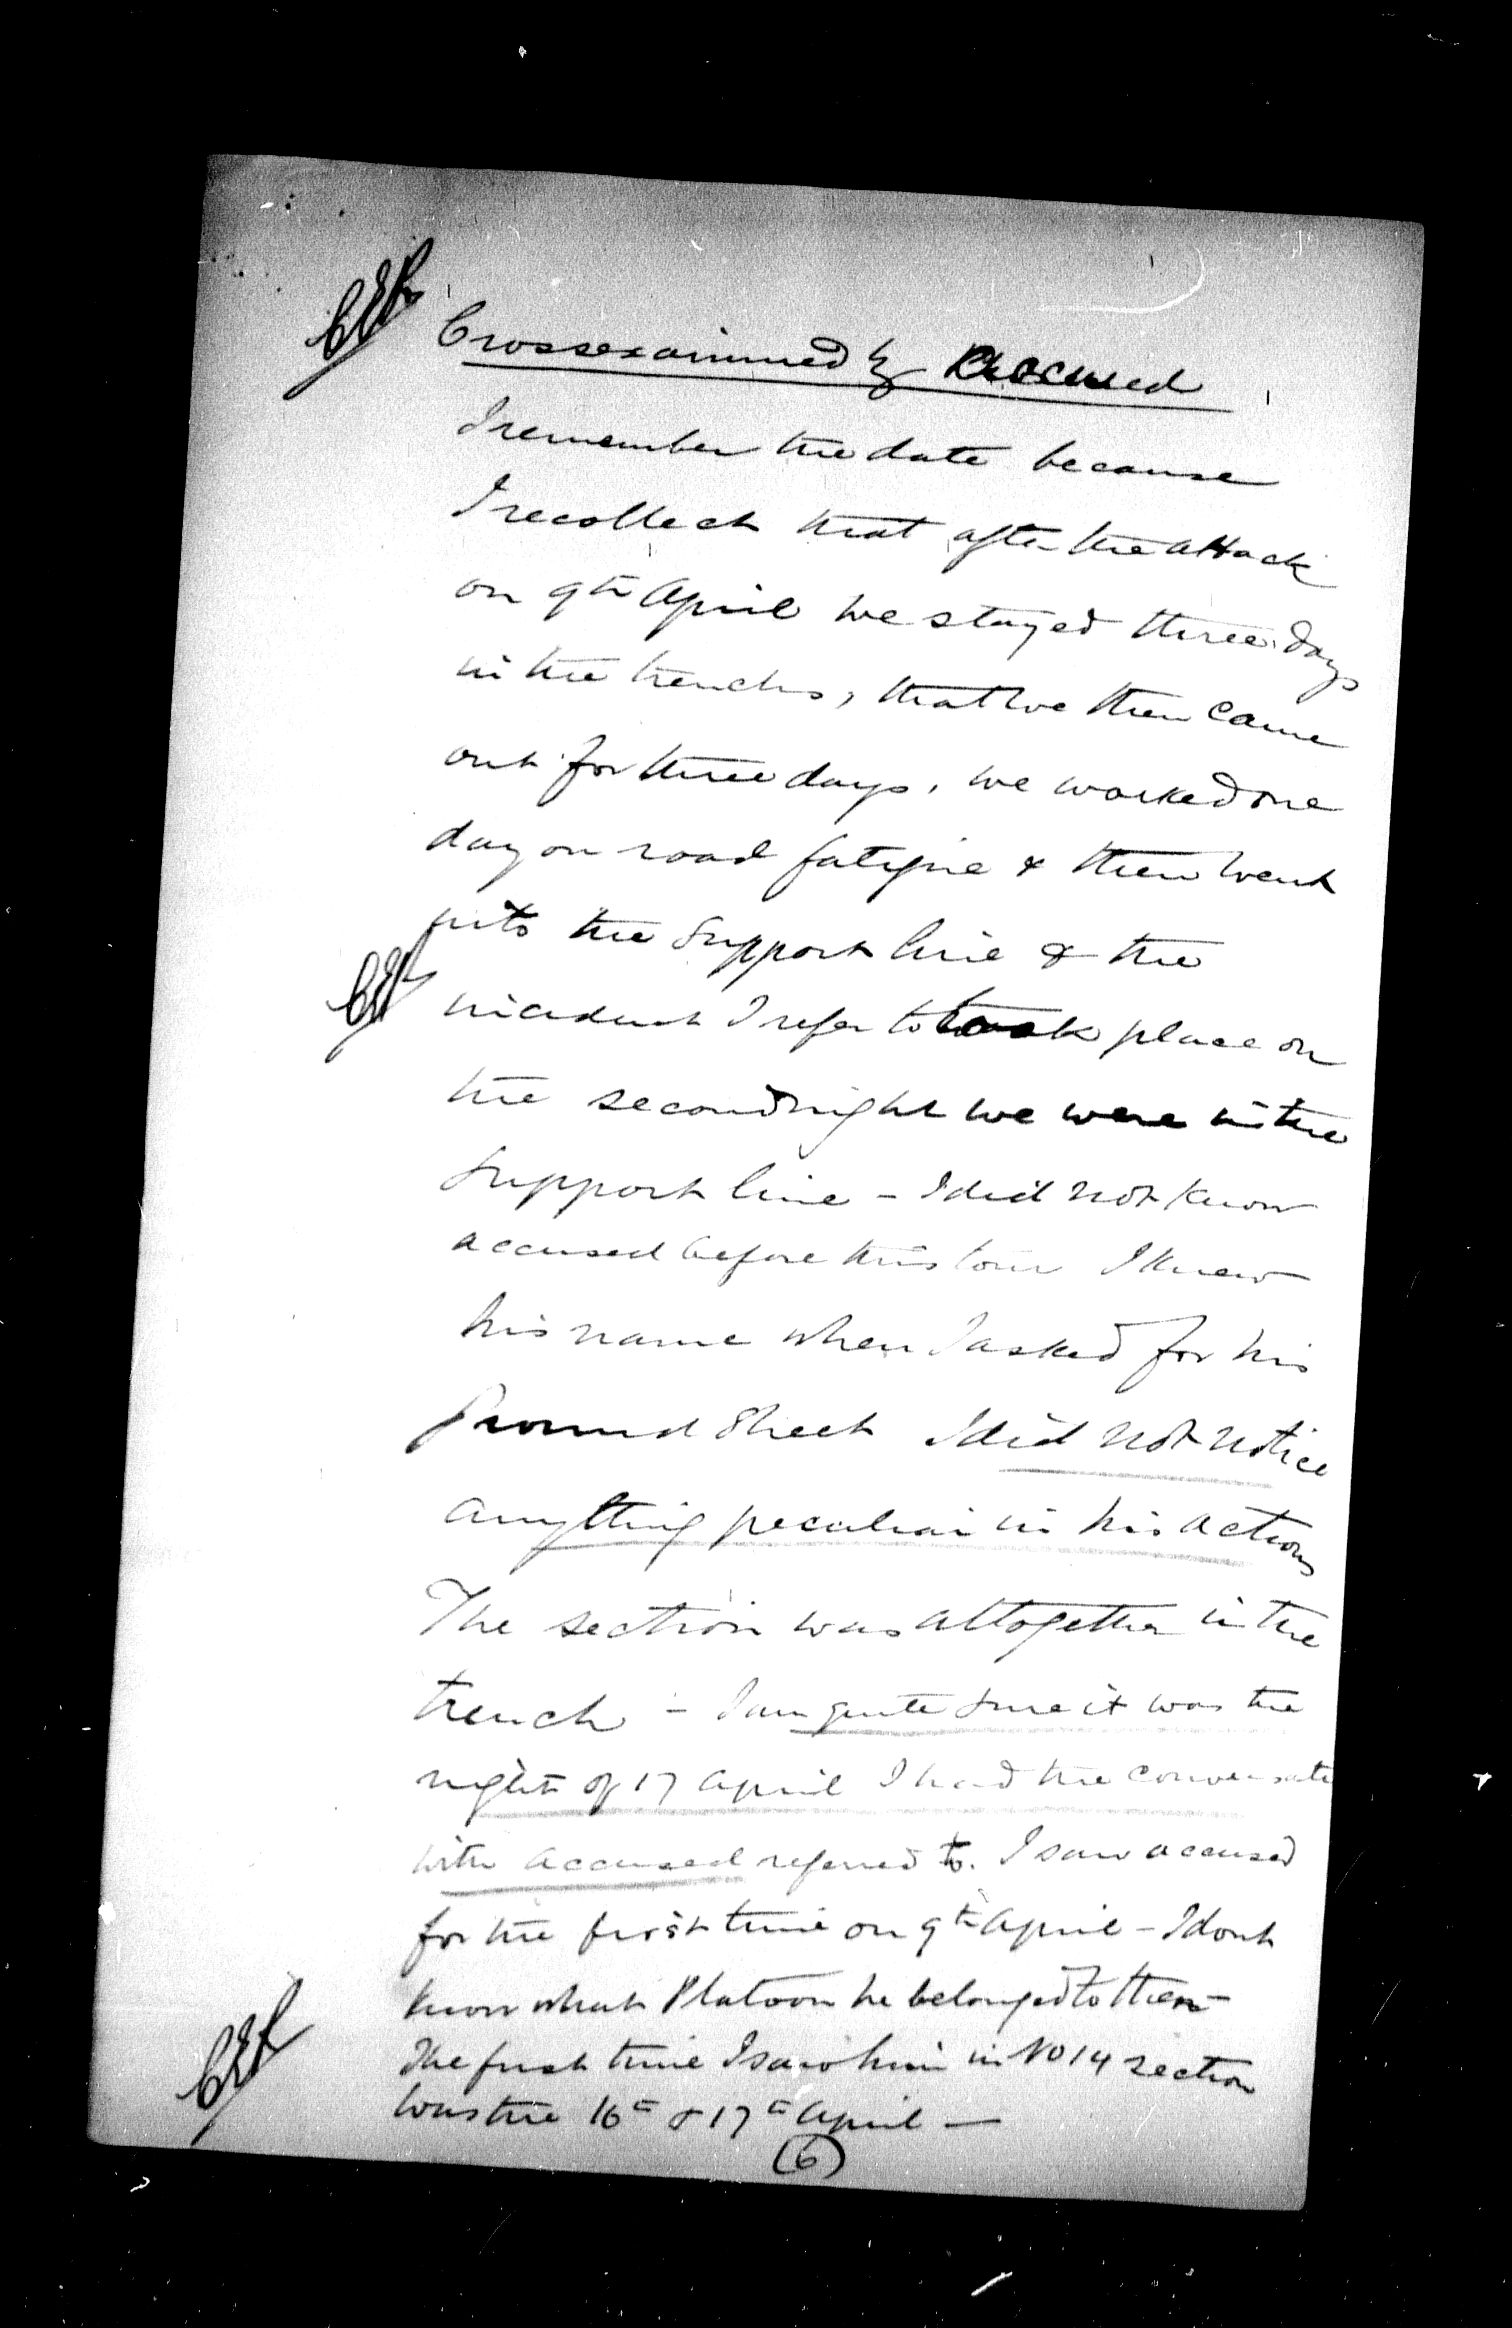 Crossexamined by Accused
I remember the date because
I recollect that after the attack
on 9th April we stayed three days
in the trenches, that we then came
out for three days, we worked one
day on road fatigue & then went
into the support line & the
incident I refer to took place on
the second night we were in the
support line - I did not know
accused before this tour I knew
his name when I asked for his
Ground Sheet I did not notice
anything peculiar in his actions
The section was altogether in the
trench - I am quite sure it was the
night of 17 April I had the conversatn
with accused referred to. I saw accused
for the first time on 9th April - I dont
know what Platoon he belonged to then
The first time I saw him in No 14 section
was the 16th & 17th April -
(6)